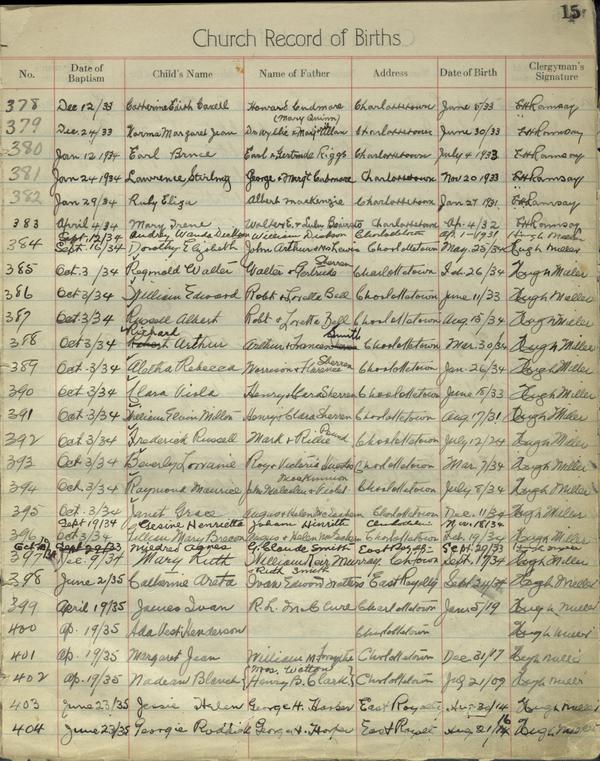 15
Church Record of Births
No. Date of Baptism Child's Name Name of Father Address Date of Birth Clergyman's Signature
378 Dec 12/33 Catherine Edith Howard Cudmore Charlottetown June 8/33 E H Ramsay
(Mary Quinn)
379 Dec 24/33 Norma Margaret Jean Charlottetown June 30/33 E H Ramsay
380 Jan 12 1934 Earl Bruce Earl & Gertrude Riggs Charlottetown July 4 1933 E H Ramsay
381 Jan 24 1934 Lawrence Stirling George & Cudmore Charlottetown Nov 20 1933 E H Ramsay
382 Jan 29/34 Ruby Eliza Albert MacKenzie Charlottetown Jan 27 1931 E H Ramsay
383 April 4/34 Mary Irene Walter E. & Charlottetown Ap. 4/32 E H Ramsay
Sept. 12/34 Audrey Wanda Dickson William Dickson Charlottetown Hugh Miller
384 Sept. 16/34 Dorothy Elizabeth John Arthur Charlottetown May. 25/34 Hugh Miller
385 Oct. 3/34 Reginald Walter Walter & Gertrude Sherren Charlottetown Feb 26/34 Hugh Miller
386 Oct 3/34 William Edward Robt & Loretta Bell Charlottetown June 11/33 Hugh Miller
387 Oct 3/34 Russell Albert Robt & Loretta Bell Charlottetown Aug. 15/34 Hugh Miller
388 Oct 3/34 Richard Arthur Arthur & Smith Charlottetown Mar. 30/34 Hugh Miller
389 Oct. 3/34 Rebecca Morrison & Florence Sherren Charlottetown Jan. 26/34 Hugh Miller
390 Oct 3/34 Clara Viola Henry & Clara Sherren Charlottetown June 15/33 Hugh Miller
391 Oct 3/34 William Elvin Milton Henry & Clara Sherren Charlottetown Aug. 17/31 Hugh Miller
392 Oct 3/34 Frederick Russell Mark & Pound Charlottetown July 12/24 Hugh Miller
393 Oct 3/34 Beverly Lorraine Roy & Victoria Charlottetown Mar. 7/34 Hugh Miller
394 Oct. 3/34 Raymond Maurice John Malcolm & Violet MacKinnon Charlottetown July 8/34 Hugh Miller
395 Oct. 3/34 Janet Grace August & Helen Charlottetown Dec. 11/34 Hugh Miller
Sept 19/34 Gesine Henrietta Johann Hinrich Nov. 18/34
396 Oct 3/34 Lillian Mary August & Helen Charlottetown Feb. 19/34 Hugh Miller
Oct 19/34 Sept 29/33 Mildred Agnes G. Claude Smith East Royalty Sept. 20/33
397 Dec. 9/34 Mary Ruth William Weir Murray Ch'town Sept. 1/34 Hugh Miller
& Ruth Smith
398 June 2/35 Catherine Areta Ivan Edward Waters East Royalty Sept 24/34 Hugh Miller
399 April 19/35 James Ivan R. L. McClure Charlottetown Jan. 5/19 Hugh Miller
400 Ap. 19/35 Ada Henderson Charlottetown Hugh Miller
401 Ap. 19/35 Margaret Jean William M. Forsythe Charlottetown Dec. 31/17 Hugh Miller
402 Ap. 19/35 Nadean Blanch { (Mrs. Watton) Henry B. Clark } Charlottetown July 21/09 Hugh Miller
403 June 23/35 Jessie Helen George H. Hooper East Royalty Aug 30/14 Hugh Miller
404 June 23/35 Georgie Roddick George H. Hooper East Royalty Aug 21/16 Hugh Miller